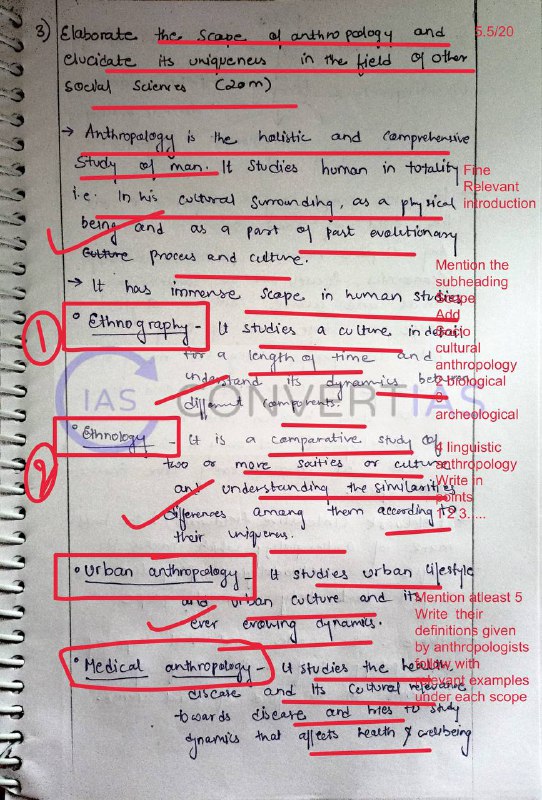 3) Elaborate the scope of anthropology and
5.5/20
elucidate its uniqueness in the field of other
social sciences (20m)
→ Anthropology is the holistic and comprehensive
study of man. It studies human in totality
i.e. In his cultural surrounding, as a physical
being and as a part of past evolutionary
culture process and culture.
Fine
Relevant
introduction
→ It has immense scope in human studies
Mention the
subheading
Scope
Add
cultural
anthropology
2 biological
archeological
4 linguistic
anthropology
Write in
points
1 2 3.....
1
• Ethnography - It studies a culture in detail
for a length of time and
understand its dynamics between
different components.
IAS CONVERTIAS
2
• Ethnology - It is a comparative study of
two or more societies or culture
and understanding the similarities
differences among them according to
their uniqueness.
• Urban anthropology - It studies urban lifestyle
and urban culture and its
ever evolving dynamics.
Mention atleast 5
Write their
definitions given
by anthropologists
follow with
relevant examples
under each scope
• Medical anthropology - It studies the health,
disease and its cultural relevance
towards disease and tries to study
dynamics that affects health & wellbeing